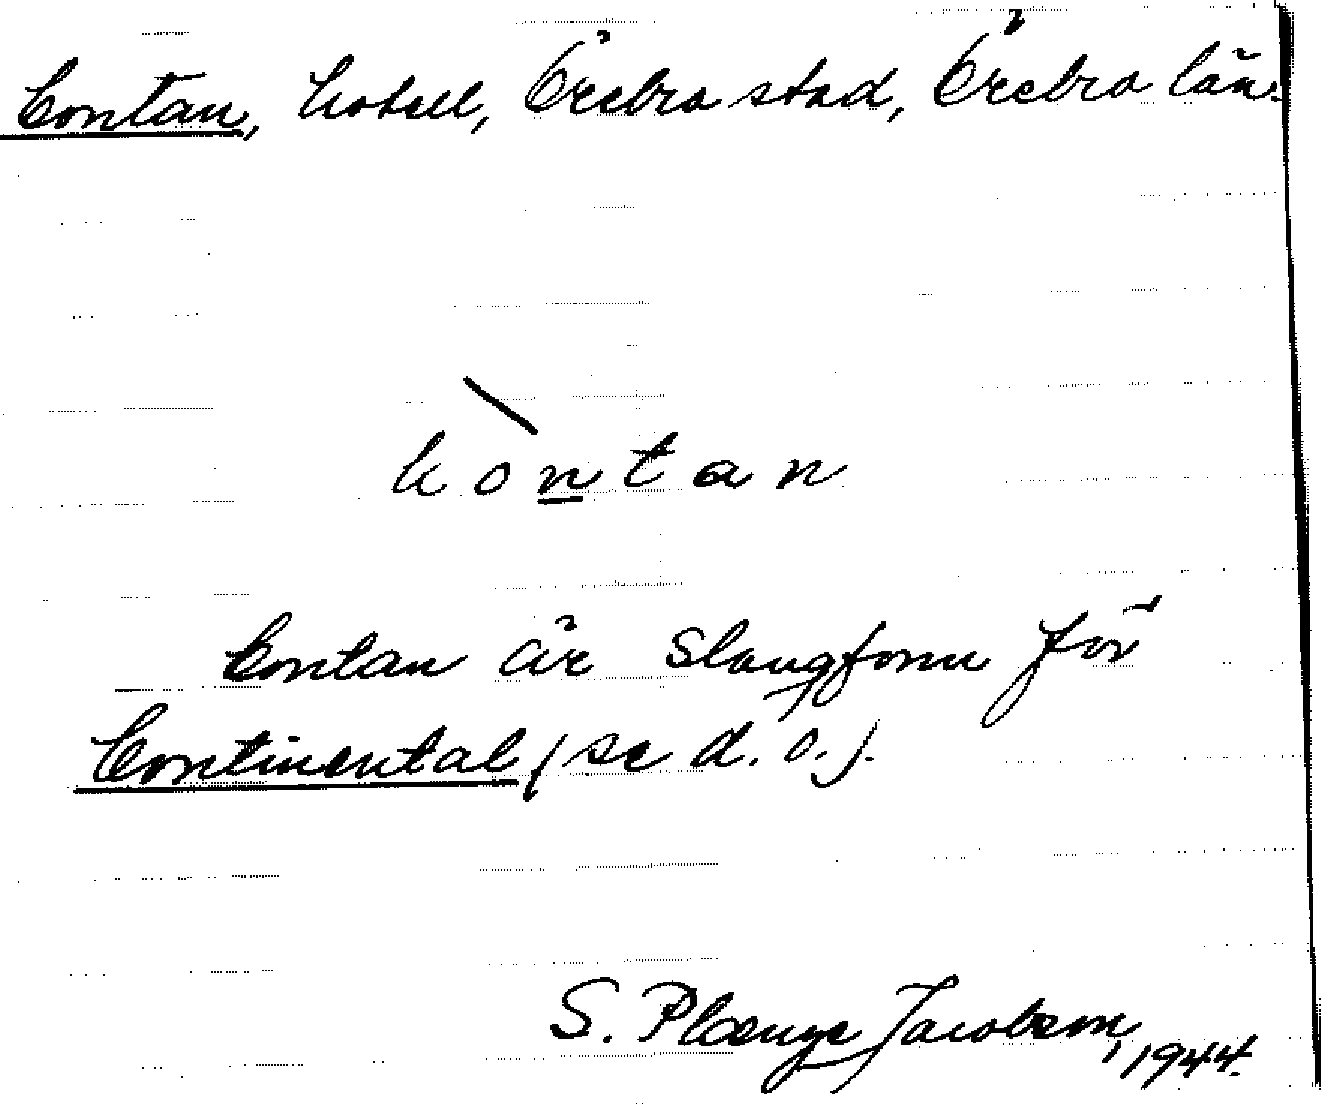 Contan, hotell, Örebro stad, Örebro län.
kòntan
Contan är slangform för
Continental (se d. o.).
S. Plœnge Jacobson, 1944.